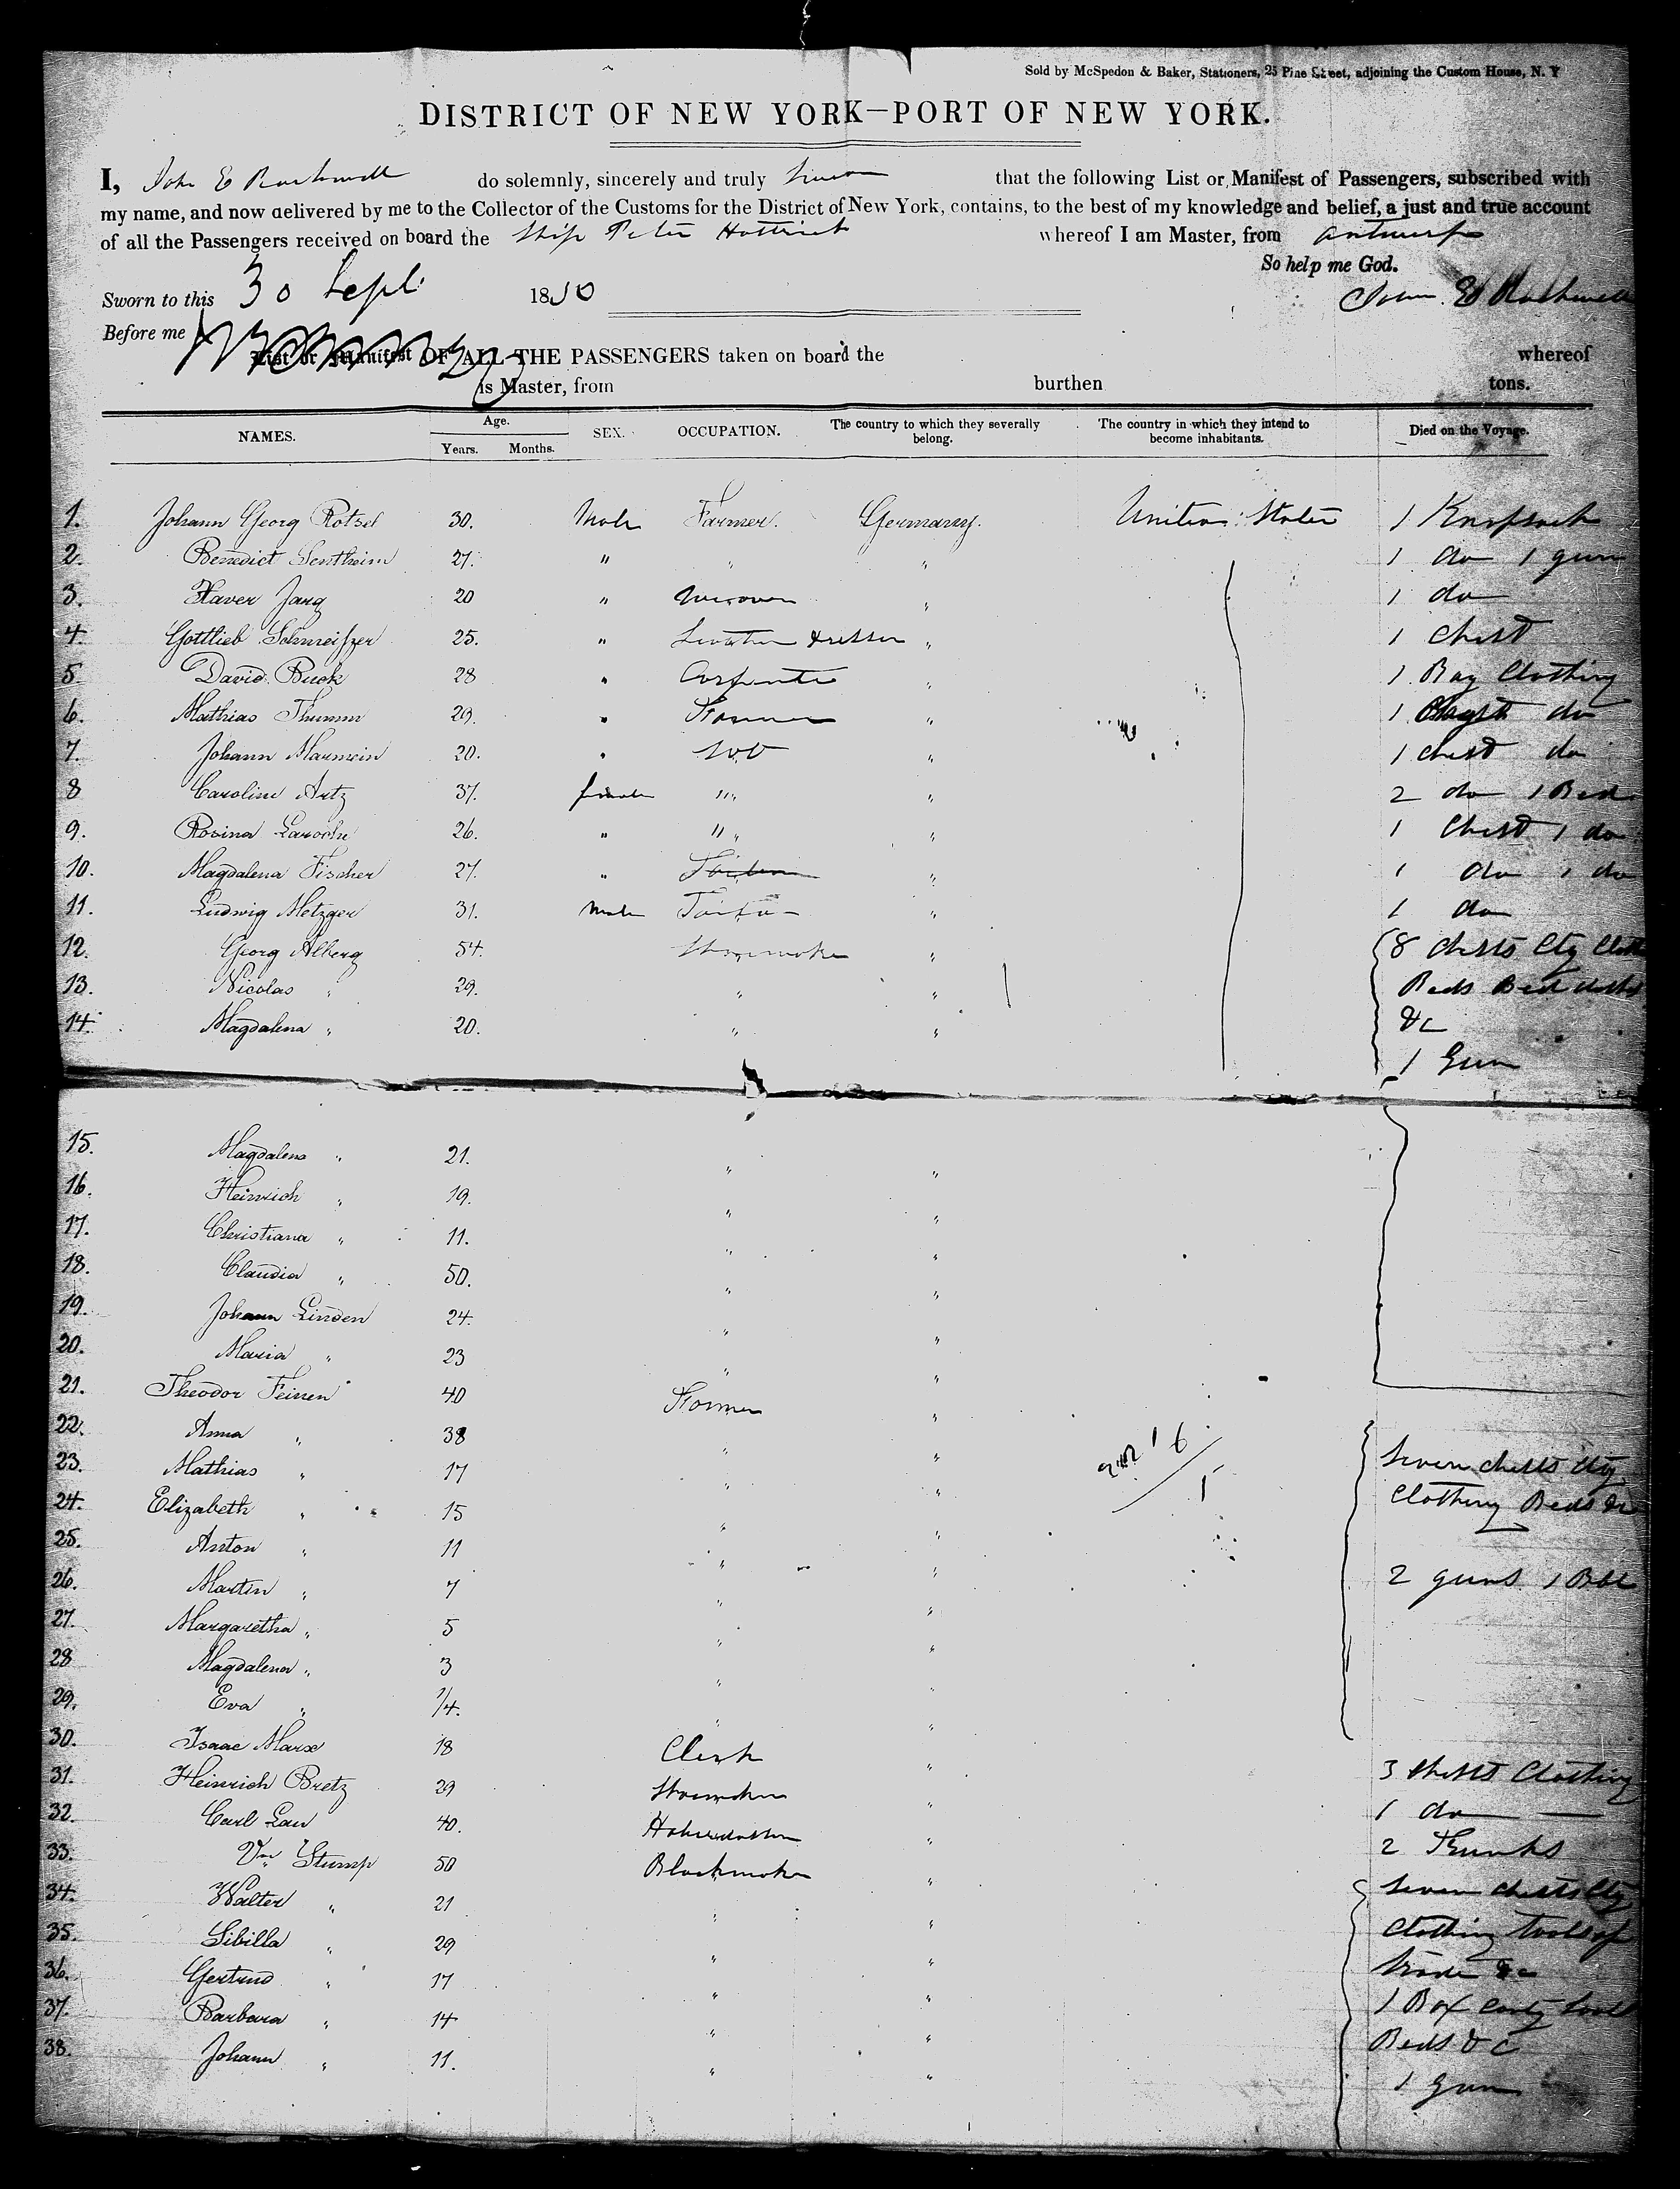 Sold by McSpedon & Baker, Stationers, 25 Pine Street, adjoining the Custom House, N. Y
DISTRICT OF NEW YORK—PORT OF NEW YORK.
I, John E Rockwell do solemnly, sincerely and truly swear that the following List or Manifest of Passengers, subscribed with
my name, and now delivered by me to the Collector of the Customs for the District of New York, contains, to the best of my knowledge and belief, a just and true account
of all the Passengers received on board the Ship Peter Hattrick whereof I am Master, from Antwerp
So help me God.
Sworn to this 30 Sept. 1850 John E Rockwell
Before me
List or Manifest OF ALL THE PASSENGERS taken on board the whereof
is Master, from burthen tons.
NAMES. Age. Years. Months. SEX. OCCUPATION. The country to which they severally belong. The country in which they intend to become inhabitants. Died on the Voyage.
1. Johann Georg Rotsel 30. Male Farmer. Germany. United States 1 Knapsack
2. Benedict Sentheim 27. " " " 1 do 1 gun
3. Xaver Jang 20 " Weaver " 1 do
4. Gottlieb Schmeisser 25. " Leather dresser " 1 Chest
5 David Buck 28 " Carpenter " 1 Bag Clothing
6. Mathias Thumm 29. " Farmer " 1 do
7. Johann Marmein 20. " " 1 chest do
8 Caroline Artz 37. female " " 2 do 1 Bed
9. Rosina Laroche 26. " " " 1 Chest 1 do
10. Magdalena Fischer 27. " " 1 do 1 do
11. Ludwig Metzger 31. Male Tailor " 1 do
12. Georg Alberg 54. Shoemaker " 8 chests Ctg Cloth
13. Nicolas " 29. " " Beds Bed cloths
14. Magdalena " 20. " " &c
1 Gun
15. Magdalena " 21. " "
16. Heinrich " 19. " "
17. Christiana " 11. " "
18. Claudia " 50. " "
19. Johann Linden 24. " "
20. Maria " 23 " "
21. Theodor Feinen 40 Farmer "
22. Anna " 38 " "
23. Mathias " 17 " " Seven chests Ctg
24. Elizabeth " 15 " " Clothing Beds &c
25. Anton " 11 " "
26. Martin " 7 " " 2 guns 1 Bbl
27. Margaretha " 5 " "
28 Magdalena " 3 " "
29. Eva " 1/4. " "
30. Isaac Marx 18 Clerk " 3 chests Clothing
31. Heinrich Bretz 29 Shoemaker " 1 do
32. Carl Lau 40. " 2 Trunks
33. Stump 50 "
34. Walter " 21 " " Seven chests Ctg
35. Sibilla " 29 " " Clothing tools of
36. Gertrud " 17 " " trade &c
37. Barbara " 14 " " 1 Box
38. Johann " 11. " " Beds & C
1 gun